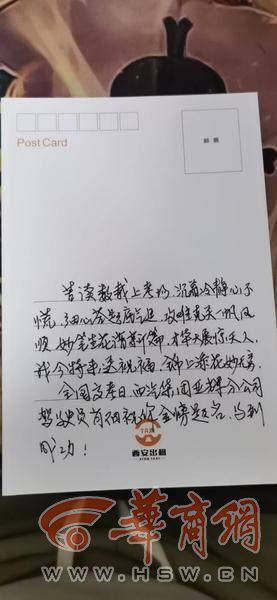 Post Card
邮 票
苦读数载上考场，沉着冷静心不
慌，细心答题底气足，攻难克关一帆风
顺，妙笔生花满篇，才华大展惊天人，
我今特来送祝福，锦上添花妙
全国高考日，西汽分公司
驾驶员祝你金榜题名，马到
成功！
西安出租
华商网
WWW.HSW.CN